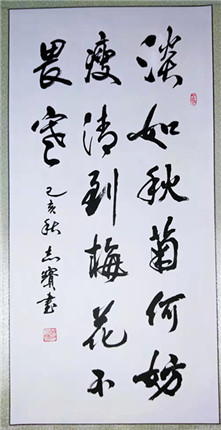 淡如秋菊何妨
瘦清到梅花不
畏寒
己亥秋志宝書